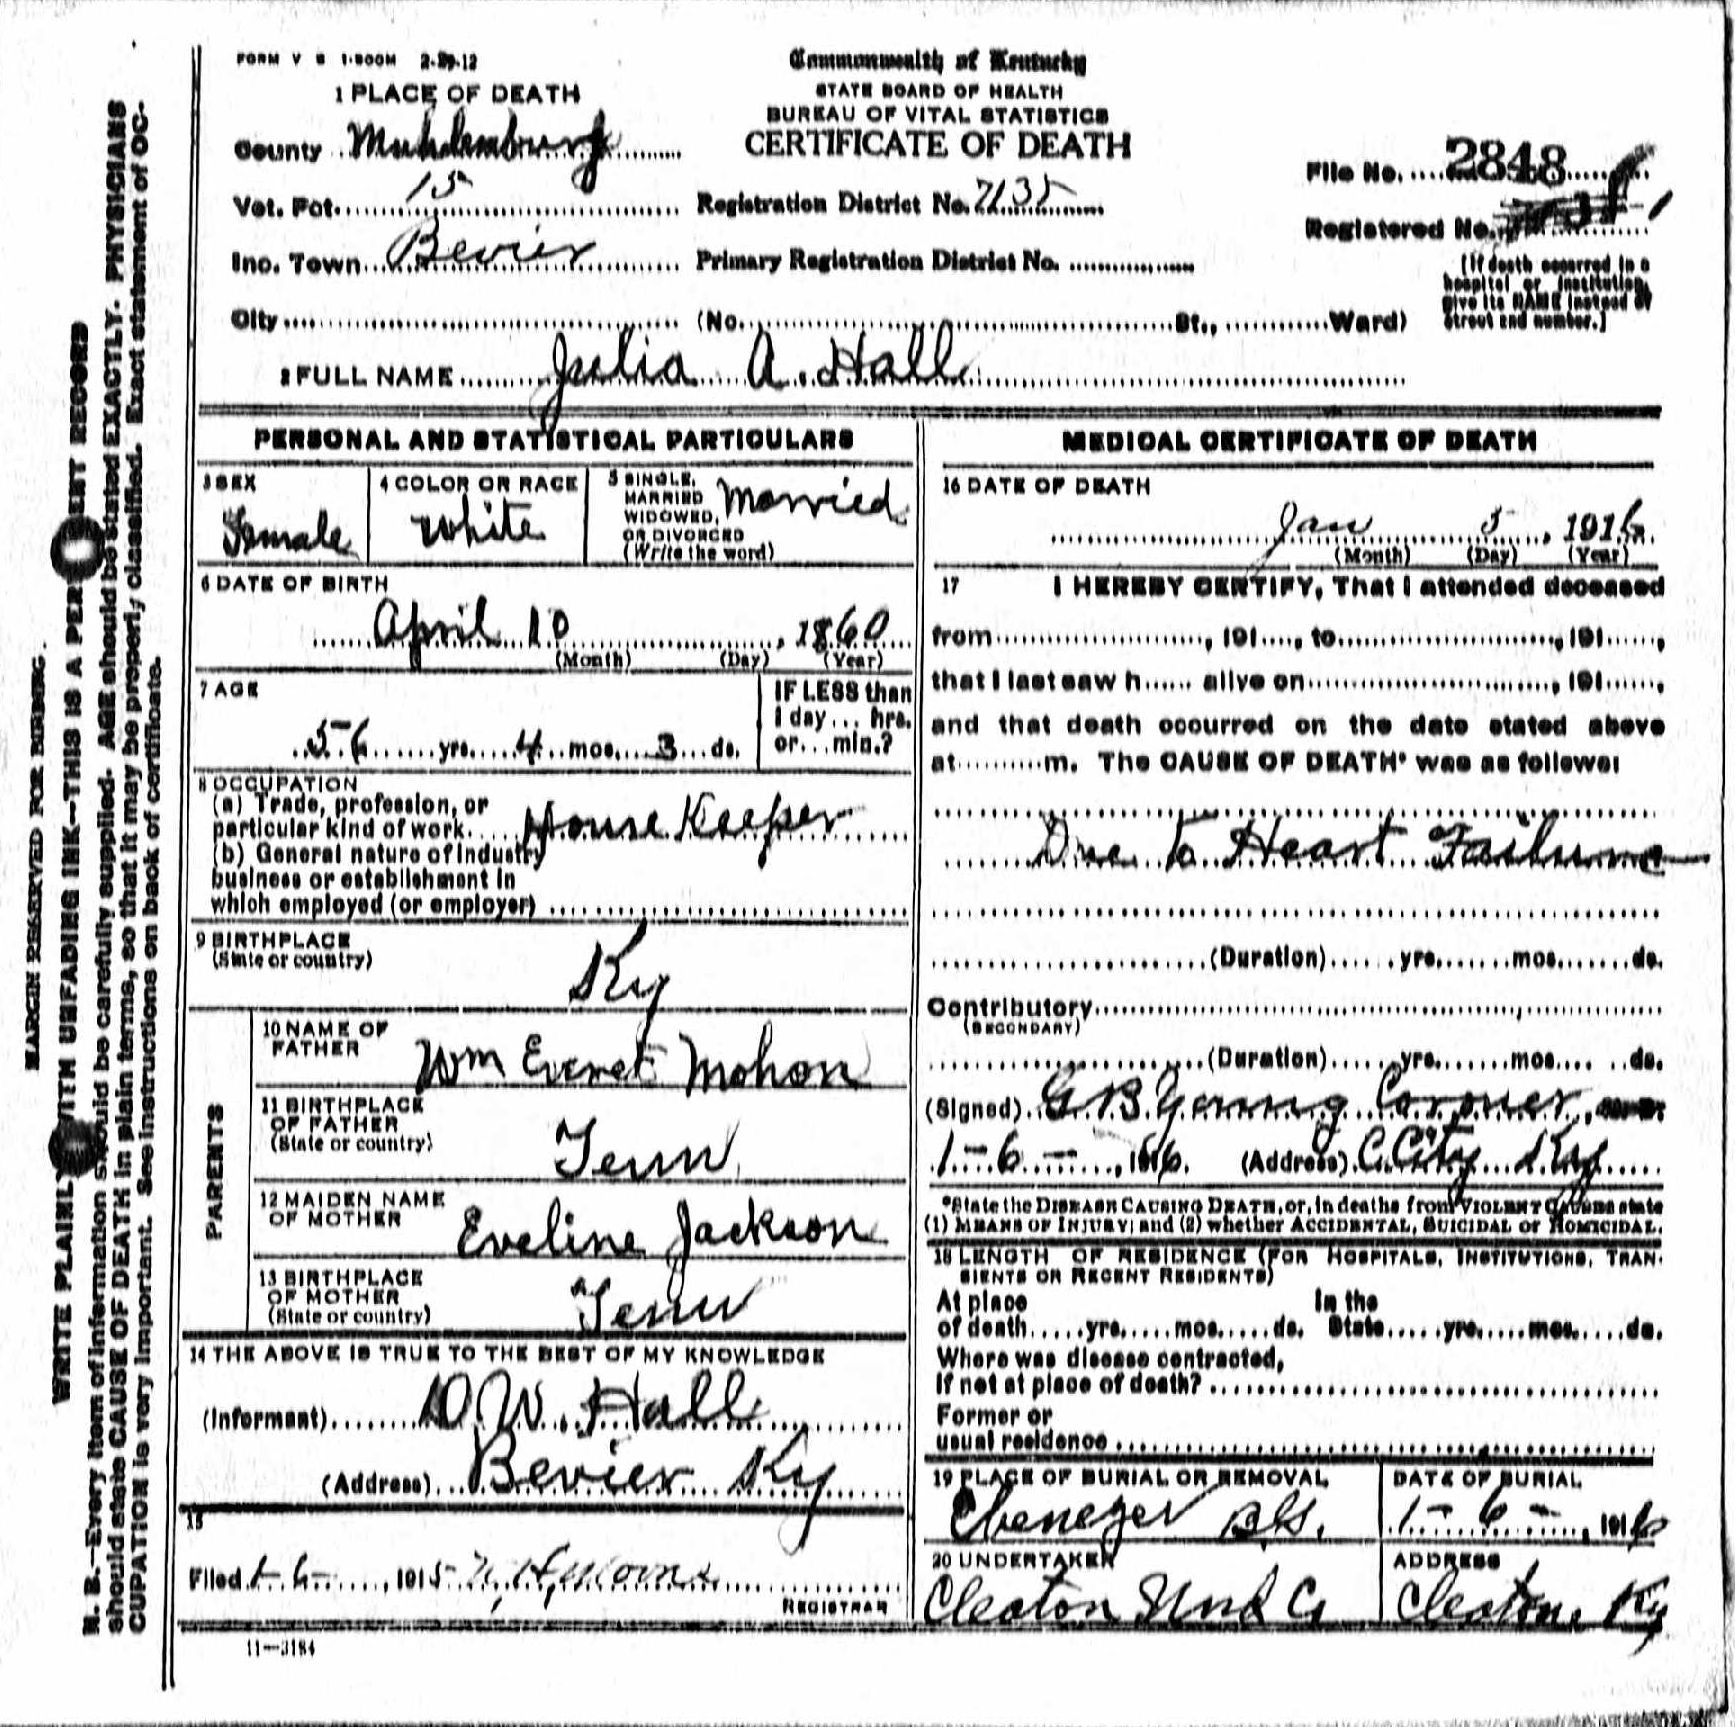 FORM V S 1-500M 2-29-12
Commonwealth of Kentucky
STATE BOARD OF HEALTH
BUREAU OF VITAL STATISTICS
CERTIFICATE OF DEATH
1 PLACE OF DEATH
County Muhlenburg
Vot. Pct. 15
Registration District No. 7135
File No. 2848
Inc. Town Bevier
Primary Registration District No.
Registered No. 1
City (No. St., Ward)
(If death occurred in a
hospital or institution,
give its NAME instead of
street and number.)
2 FULL NAME Julia A. Hall
PERSONAL AND STATISTICAL PARTICULARS
3 SEX
Female
4 COLOR OR RACE
White
5 SINGLE,
MARRIED
WIDOWED,
OR DIVORCED
(Write the word)
Married
6 DATE OF BIRTH
April 10, 1860
(Month) (Day) (Year)
7 AGE
56 yrs. 4 mos. 3 ds.
IF LESS than
1 day... hrs.
or... min.?
8 OCCUPATION
(a) Trade, profession, or
particular kind of work House Keeper
(b) General nature of industry
business or establishment in
which employed (or employer)
9 BIRTHPLACE
(State or country)
Ky
PARENTS
10 NAME OF
FATHER
Wm Everet Mohon
11 BIRTHPLACE
OF FATHER
(State or country)
Tenn
12 MAIDEN NAME
OF MOTHER
Eveline Jackson
13 BIRTHPLACE
OF MOTHER
(State or country)
Tenn
14 THE ABOVE IS TRUE TO THE BEST OF MY KNOWLEDGE
(Informant) D. W. Hall
(Address) Bevier Ky
15
Filed 1-6, 1915
REGISTRAR
11-3184
MEDICAL CERTIFICATE OF DEATH
16 DATE OF DEATH
Jan 5, 1916
(Month) (Day) (Year)
17 I HEREBY CERTIFY, That I attended deceased
from , 191 , to , 191 ,
that I last saw h alive on , 191 ,
and that death occurred on the date stated above
at m. The CAUSE OF DEATH* was as follows:
Due to Heart Failure
(Duration) yrs. mos. ds.
Contributory
(SECONDARY)
(Duration) yrs. mos. ds.
(Signed) G. B Young Coroner
1-6-, 1916. (Address) C. City Ky
*State the DISEASE CAUSING DEATH, or, in deaths from VIOLENT CAUSES state
(1) MEANS OF INJURY; and (2) whether ACCIDENTAL, SUICIDAL or HOMICIDAL.
18 LENGTH OF RESIDENCE (FOR HOSPITALS, INSTITUTIONS, TRAN-
SIENTS OR RECENT RESIDENTS)
At place In the
of death yrs. mos. ds. State yrs. mos. ds.
Where was disease contracted,
If not at place of death?
Former or
usual residence
19 PLACE OF BURIAL OR REMOVAL
Ebenezer
DATE OF BURIAL
1-6-, 1916
20 UNDERTAKER
Cleaton Und Co
ADDRESS
Cleaton Ky
MARGIN RESERVED FOR BINDING.
WRITE PLAINLY WITH UNFADING INK—THIS IS A PERMANENT RECORD
N. B.—Every item of information should be carefully supplied. AGE should be stated EXACTLY. PHYSICIANS
should state CAUSE OF DEATH in plain terms, so that it may be properly classified. Exact statement of OC-
CUPATION is very important. See instructions on back of certificate.